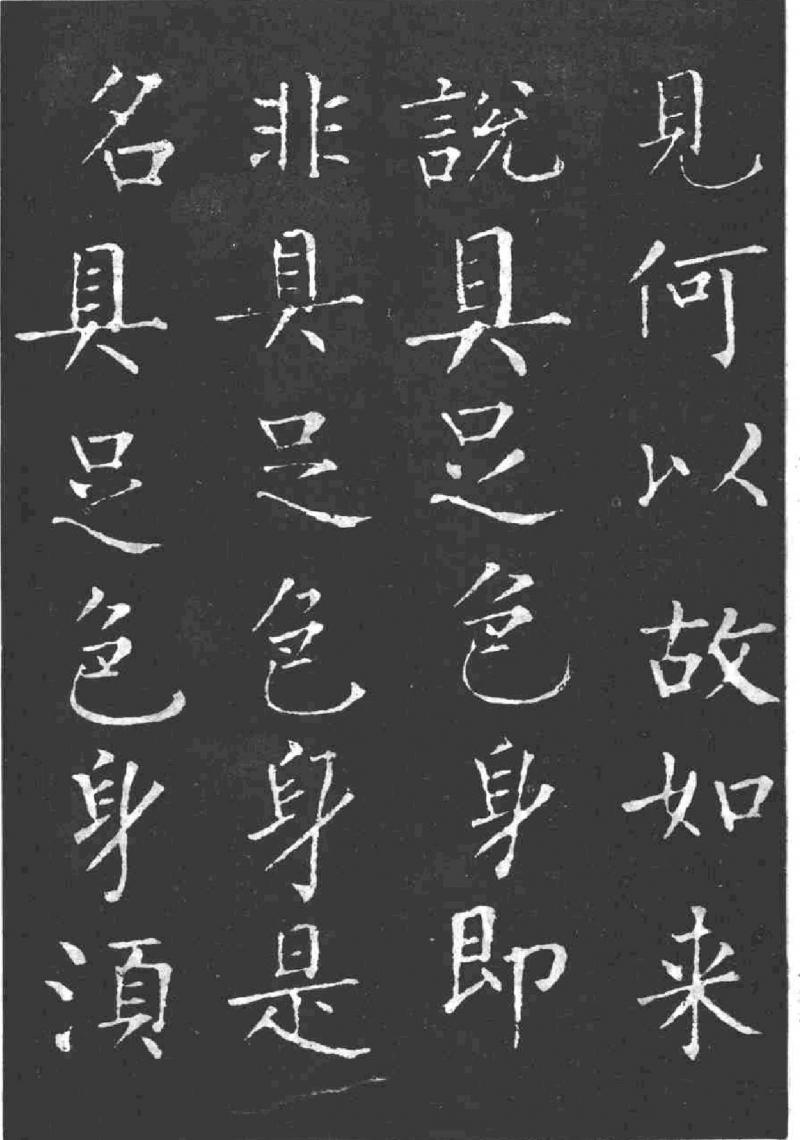 見何以故如来
說具足色身即
非具足色身是
名具足色身須